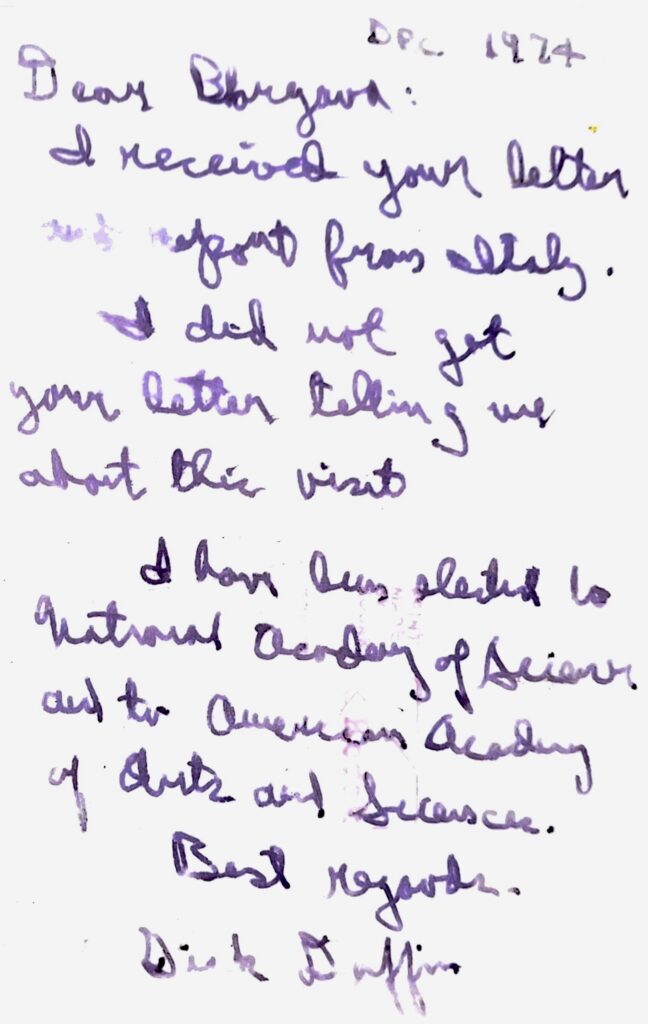 Dec 1974
Dear Bhargava:
I received your letter
and report from Italy.
I did not get
your letter telling me
about this visit
I have been elected to
National Academy of Science
and to American Academy
of Arts and Sciences.
Best regards.
Dick Duffin